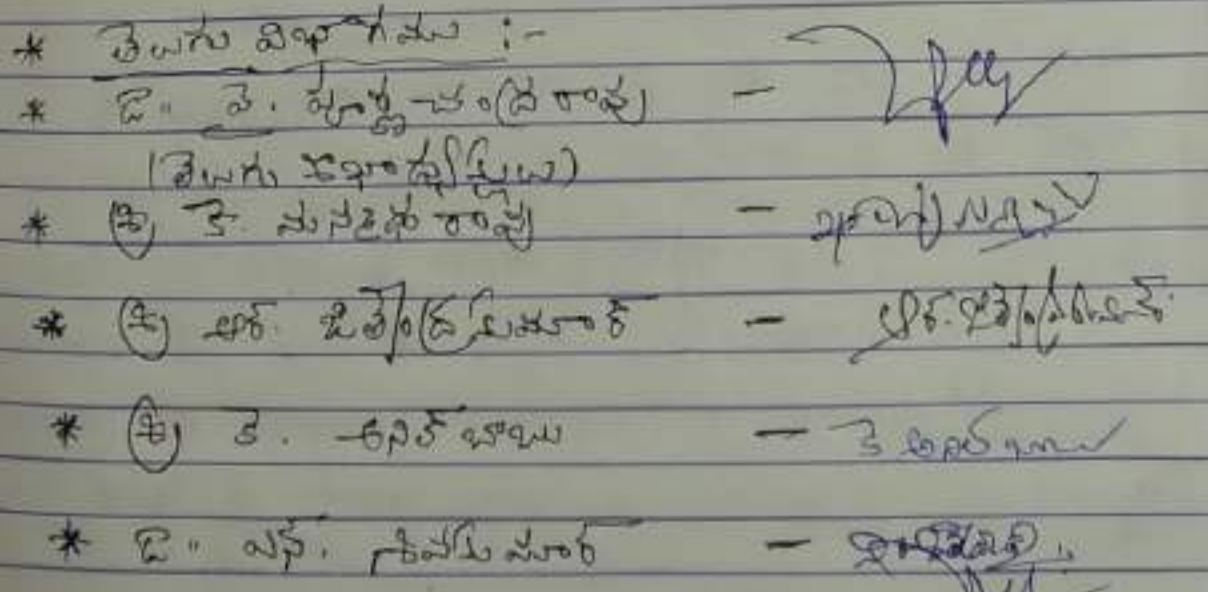 * తెలుగు విభాగము :-
* డా॥ వై. పూర్ణచంద్రరావు -
(తెలుగు శాఖాధ్యక్షులు)
* శ్రీ కె. రావు -
* శ్రీ ఆర్. జితేంద్రకుమార్ - ఆర్. జితేంద్రకుమార్
* శ్రీ కె. అనిల్ బాబు - కె అనిల్ బాబు
* డా॥ ఎన్. శివకుమార్ -